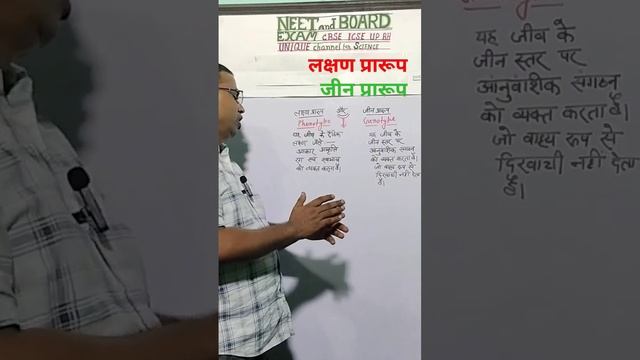 NEET and BOARD
EXAM CBSE ICSE UP RH
UNIQUE channel for SCIENCE
लक्षण प्रारूप
जीन प्रारूप
लक्षण प्रारूप और जीन प्रारूप
Phenotype Genotype
यह जीव के दैहिक
लक्षण जैसे
आकार आकृति
रंग एवं स्वभाव
को व्यक्त करता है।
यह जीव के
जीन स्तर पर
आनुवांशिक संगठन
को व्यक्त करता है।
जो बाह्य रूप से
दिखायी नहीं देता
है।
यह जीव के
जीन स्तर पर
आनुवांशिक संगठन
को व्यक्त करता है।
जो बाह्य रूप से
दिखायी नहीं देता
है।